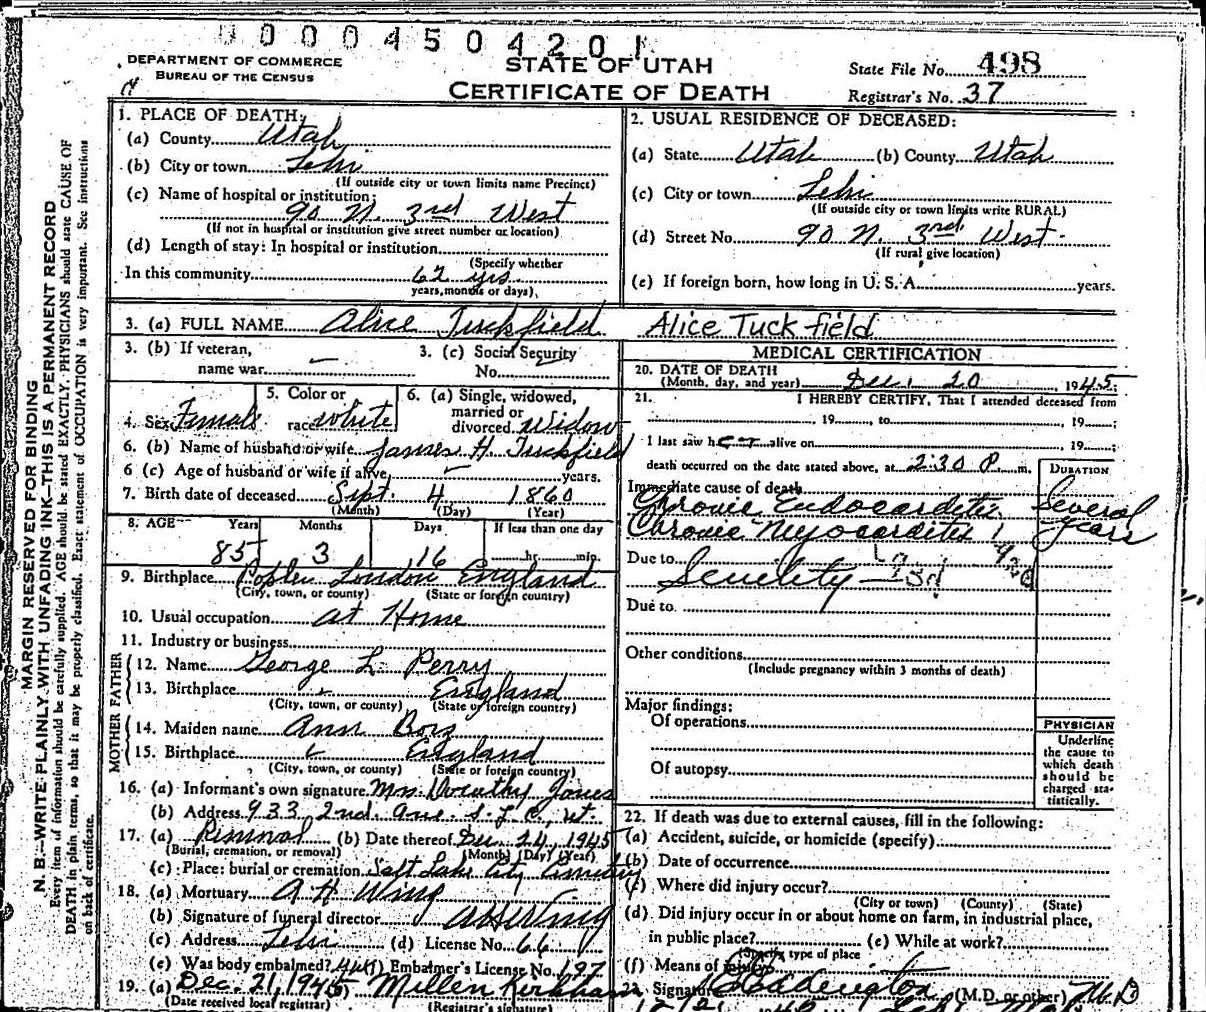 0000450420
DEPARTMENT OF COMMERCE
BUREAU OF THE CENSUS
STATE OF UTAH
CERTIFICATE OF DEATH
State File No. 498
Registrar's No. 37
MARGIN RESERVED FOR BINDING
N. B.—WRITE PLAINLY, WITH UNFADING INK—THIS IS A PERMANENT RECORD
Every item of information should be carefully supplied. AGE should be stated EXACTLY. PHYSICIANS should state CAUSE OF
DEATH in plain terms, so that it may be properly classified. Exact statement of OCCUPATION is very important. See instructions
on back of certificate.
1. PLACE OF DEATH:
(a) County Utah
(b) City or town Lehi
(If outside city or town limits name Precinct)
(c) Name of hospital or institution:
90 N. 3rd West
(If not in hospital or institution give street number or location)
(d) Length of stay: In hospital or institution
(Specify whether
In this community 62 yrs
years, months or days)
2. USUAL RESIDENCE OF DECEASED:
(a) State Utah (b) County Utah
(c) City or town Lehi
(If outside city or town limits write RURAL)
(d) Street No. 90 N. 3rd West
(If rural give location)
(e) If foreign born, how long in U. S. A. years.
3. (a) FULL NAME Alice Tuckfield Alice Tuckfield
3. (b) If veteran,
name war —
3. (c) Social Security
No.
4. Sex Female
5. Color or
race white
6. (a) Single, widowed,
married or
divorced Widow
6. (b) Name of husband or wife James H. Tuckfield
6 (c) Age of husband or wife if alive years.
7. Birth date of deceased Sept. 4 1860
(Month) (Day) (Year)
8. AGE Years Months Days If less than one day
85 3 16 hr. min.
9. Birthplace London England
(City, town, or county) (State or foreign country)
10. Usual occupation at Home
11. Industry or business
FATHER
12. Name George L. Perry
13. Birthplace England
(City, town, or county) (State or foreign country)
MOTHER
14. Maiden name Ann
15. Birthplace England
(City, town, or county) (State or foreign country)
16. (a) Informant's own signature Mrs. Dorothy Jones
(b) Address 933 2nd. Ave. S. L. C., Ut.
17. (a) Removal (b) Date thereof Dec. 24, 1945
(Burial, cremation, or removal) (Month) (Day) (Year)
(c) Place: burial or cremation Salt Lake City Cemetery
18. (a) Mortuary A H Wing
(b) Signature of funeral director A H Wing
(c) Address Lehi (d) License No. 66
(e) Was body embalmed? yes (f) Embalmer's License No. 197
19. (a) Dec. 21, 1945
(Date received local registrar) (Registrar's signature)
MEDICAL CERTIFICATION
20. DATE OF DEATH
(Month, day, and year) Dec. 20, 1945
21. I HEREBY CERTIFY, That I attended deceased from
19 , to , 19 ;
I last saw her alive on , 19 ;
death occurred on the date stated above, at 2:30 P. m.
DURATION
Immediate cause of death
Chronic Endocarditis Several
Chronic Myocarditis years
Due to Senility
Due to
Other conditions
(Include pregnancy within 3 months of death)
Major findings:
Of operations
Of autopsy
PHYSICIAN
Underline
the cause to
which death
should be
charged sta-
tistically.
22. If death was due to external causes, fill in the following:
(a) Accident, suicide, or homicide (specify)
(b) Date of occurrence
(c) Where did injury occur?
(City or town) (County) (State)
(d) Did injury occur in or about home on farm, in industrial place,
in public place? (e) While at work?
(Specify type of place
(f) Means of injury
23. Signature Eddington (M.D. or other) M D